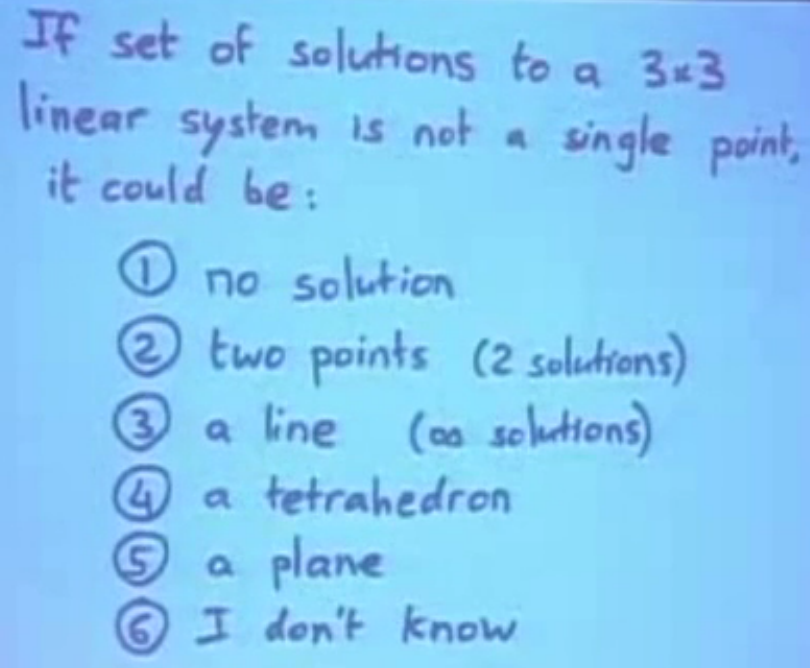 If set of solutions to a 3×3
linear system is not a single point,
it could be:
① no solution
② two points (2 solutions)
③ a line (∞ solutions)
④ a tetrahedron
⑤ a plane
⑥ I don't know